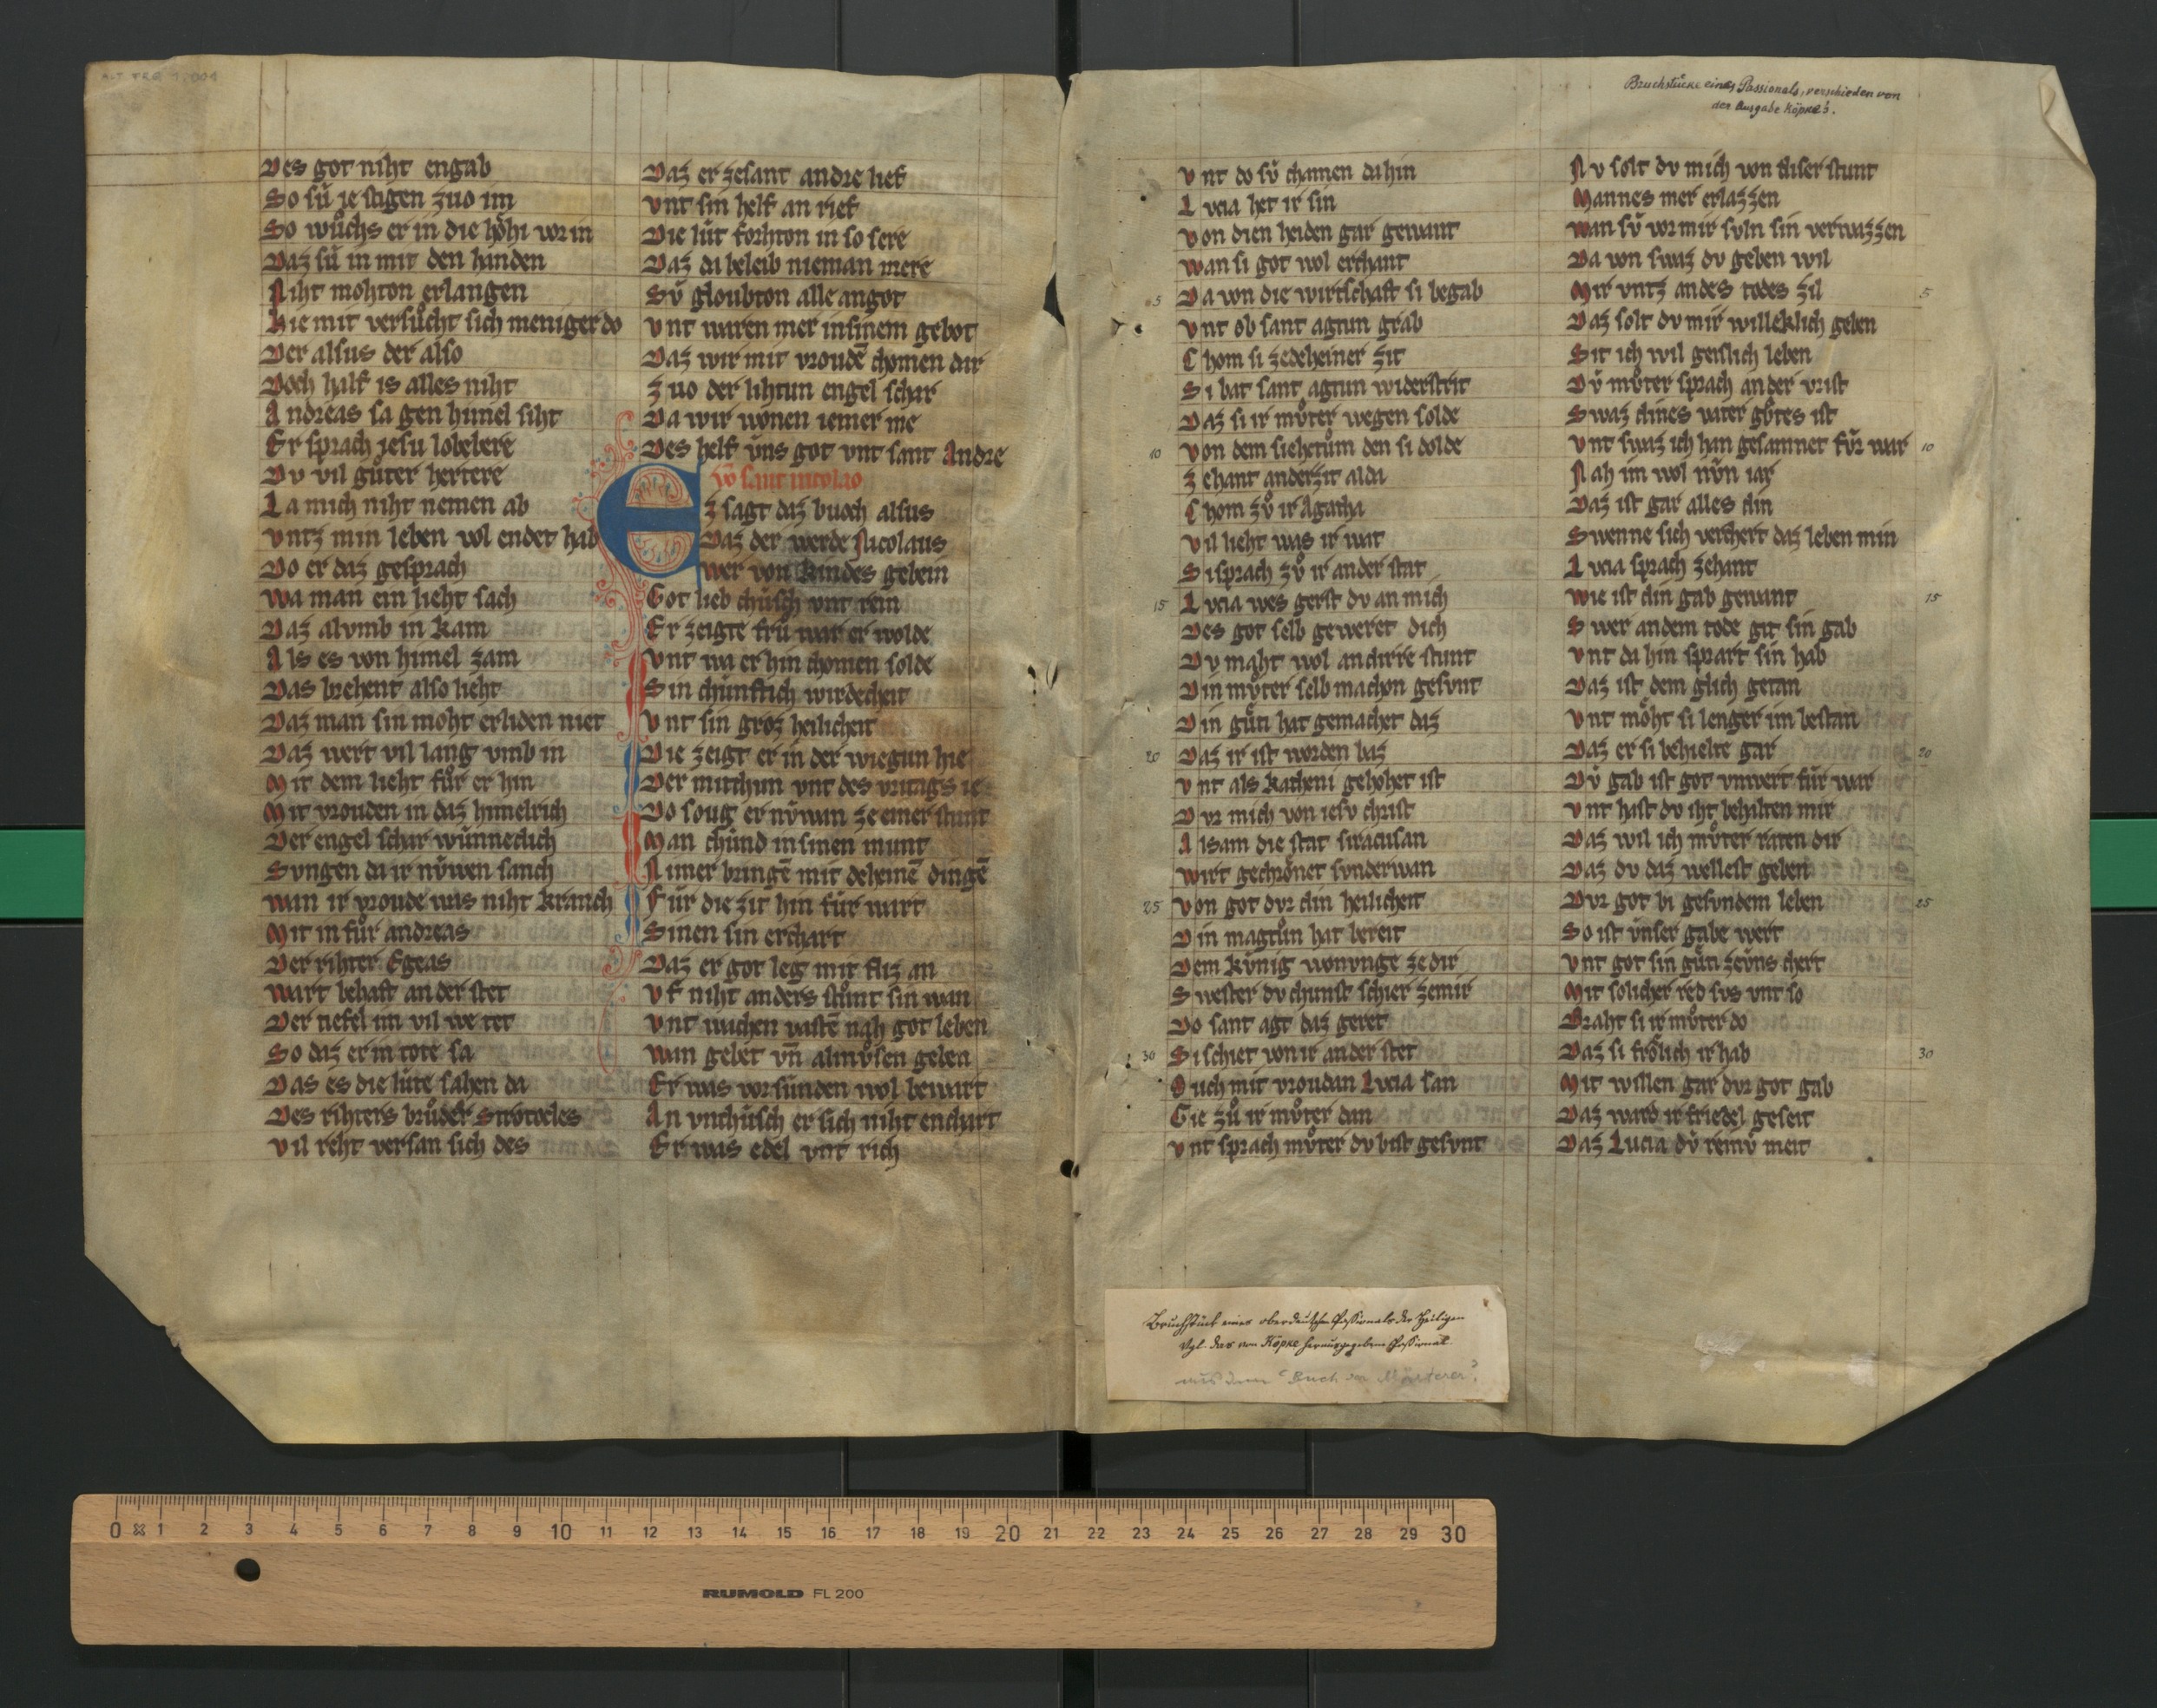 ALT. FRG. 1, 001
Des got niht engab
So sů ie stigen zuo im
So wůchs er in die hoͤhi vor in
Daz sů in mit den handen
Niht mohton erlangen
Hie mit versůcht sich meniger do
Der alsus der also
Doch half is alles niht
Andreas sa gen himel siht
Er sprach iesu lobebere
Dv vil gůter herrere
La mich niht nemen ab
vntz min leben vol endet hab
Do er daz gesprach
wa man ein lieht sach
Daz alvmb in kam
Als es von himel zam
Das brehent also lieht
Daz man sin moht erliden niet
Daz wert vil lang vmb in
Mit dem lieht fůr er hin
Mit vrouden in daz himelrich
Der engel schar wůnneclich
Svngen da ir nůwen sanch
wan ir vroude was niht kranch
Mit in fůr andreas
Der rihter Egeas
wart behaft an der stet
Der tiefel im vil we tet
So daz er in tote sa
Das es die lůte sahen da
Des rihters brůder Strotocles
vil reht versan sich des
Daz er zesant andre lief
vnt sin helf an rief
Die lůt forhton in so sere
Daz da beleib nieman mere
Sů gloubton alle an got
vnt waren mer in sinem gebot
Daz wir mit vroudē chomen dar
zuo der lihtun engel schar
Da wir wonen iemer me
Des helf ůns got vnt sant Andre
vō sant nicolao
Ez sagt daz buoch alsus
Daz der werde Nicolaus
wer von kindes gebein
Got lieb chůsch vnt rein
Er zeigte frů war er wolde
vnt wa er hin chomen solde
Sin chůnftich wirdecheit
vnt sin groz heilicheit
Die zeigt er in der wiegun hie
Der mitchun vnt des vritags ie
Do soug er nůwan ze einer stunt
Man chůnd in sinen munt
Nimer bringē mit deheinē dingē
Fůr die zit hin fůr wart
Sinen sin erchart
Daz er got leg mit fliz an
vf niht anders stůnt sin wan
vnt wachen vastē nah got leben
wan gebet vn̄ almůsen geben
Er was vor sůnden wol bewart
An vnchůsch er sich niht enchart
Er was edel vnt rich
Bruchstücke eines Passionals, verschieden von
der Ausgabe Köpke's.
vnt do sů chamen da hin
Lvcia het ir sin
von dien heiden gar gewant
wan si got wol erchant
5 Da von die wirtschaft si begab
vnt ob sant agtun grab
Chom si ze deheiner zit
Si bat sant agtun widerstrit
Daz si ir můter wegen solde
10 von dem siehetům den si dolde
zehant anderzit alda
Chom zů ir Agatha
vil lieht was ir wat
Si sprach zů ir an der stat
15 Lvcia wes gerst dv an mich
Des got selb geweret dich
Dv maht wol an dirre stunt
Din můter selb machon gesvnt
Din gůti hat gemachet daz
20 Daz ir ist worden baz
vnt als katheni gehohet ist
Dvr mich von iesv christ
Alsam die stat siracusan
wirt gechroͤnet svnder wan
25 von got dvr din heilicheit
Din magtům hat bereit
Dem kůnig wonvnge ze dir
Swester dv chunst schier ze mir
Do sant agt daz geret
30 Si schiet von ir an der stet
Ouch mit vroudan Lvcia san
Gie zů ir můter dan
vnt sprach můter dv bist gesvnt
Nv solt dv mich von diser stunt
Mannes mer erlazzen
wan sů vor mir svln sin verwazzen
Da von swaz dv geben wil
Mir vntz an des todes zil 5
Daz solt dv mir willeklich geben
Sit ich wil geislich leben
Dů můter sprach an der vrist
Swaz dines vater gůtes ist
vnt swaz ich han gesamnet fůr war 10
Nah im wol nůn iar
Daz ist gar alles din
Swenne sich verchert daz leben min
Lvcia sprach zehant
wie ist din gab gewant 15
Swer an dem tode git sin gab
vnt da hin spart sin hab
Daz ist dem glich getan
vnt moͤht si lenger im bestan
Daz er si behielte gar 20
Dů gab ist got vnwert fůr war
vnt hast dv iht behalten mir
Daz wil ich můter raten dir
Daz dv daz wellest geben
Dvr got bi gesvndem leben 25
So ist ůnser gabe wert
vnt got sin gůti ze ůns chert
Mit solicher red svs vnt so
Braht si ir můter do
Daz si froͤlich ir hab 30
Mit willen gar dvr got gab
Daz ward ir friedel geseit
Daz Lucia dů reinů meit
Bruchstück eines oberdeutschen Passionals der Heiligen
Vgl. das von Köpke herausgegebene Passional.
aus dem "Buch der Märterer"?
0 1 2 3 4 5 6 7 8 9 10 11 12 13 14 15 16 17 18 19 20 21 22 23 24 25 26 27 28 29 30
RUMOLD FL 200